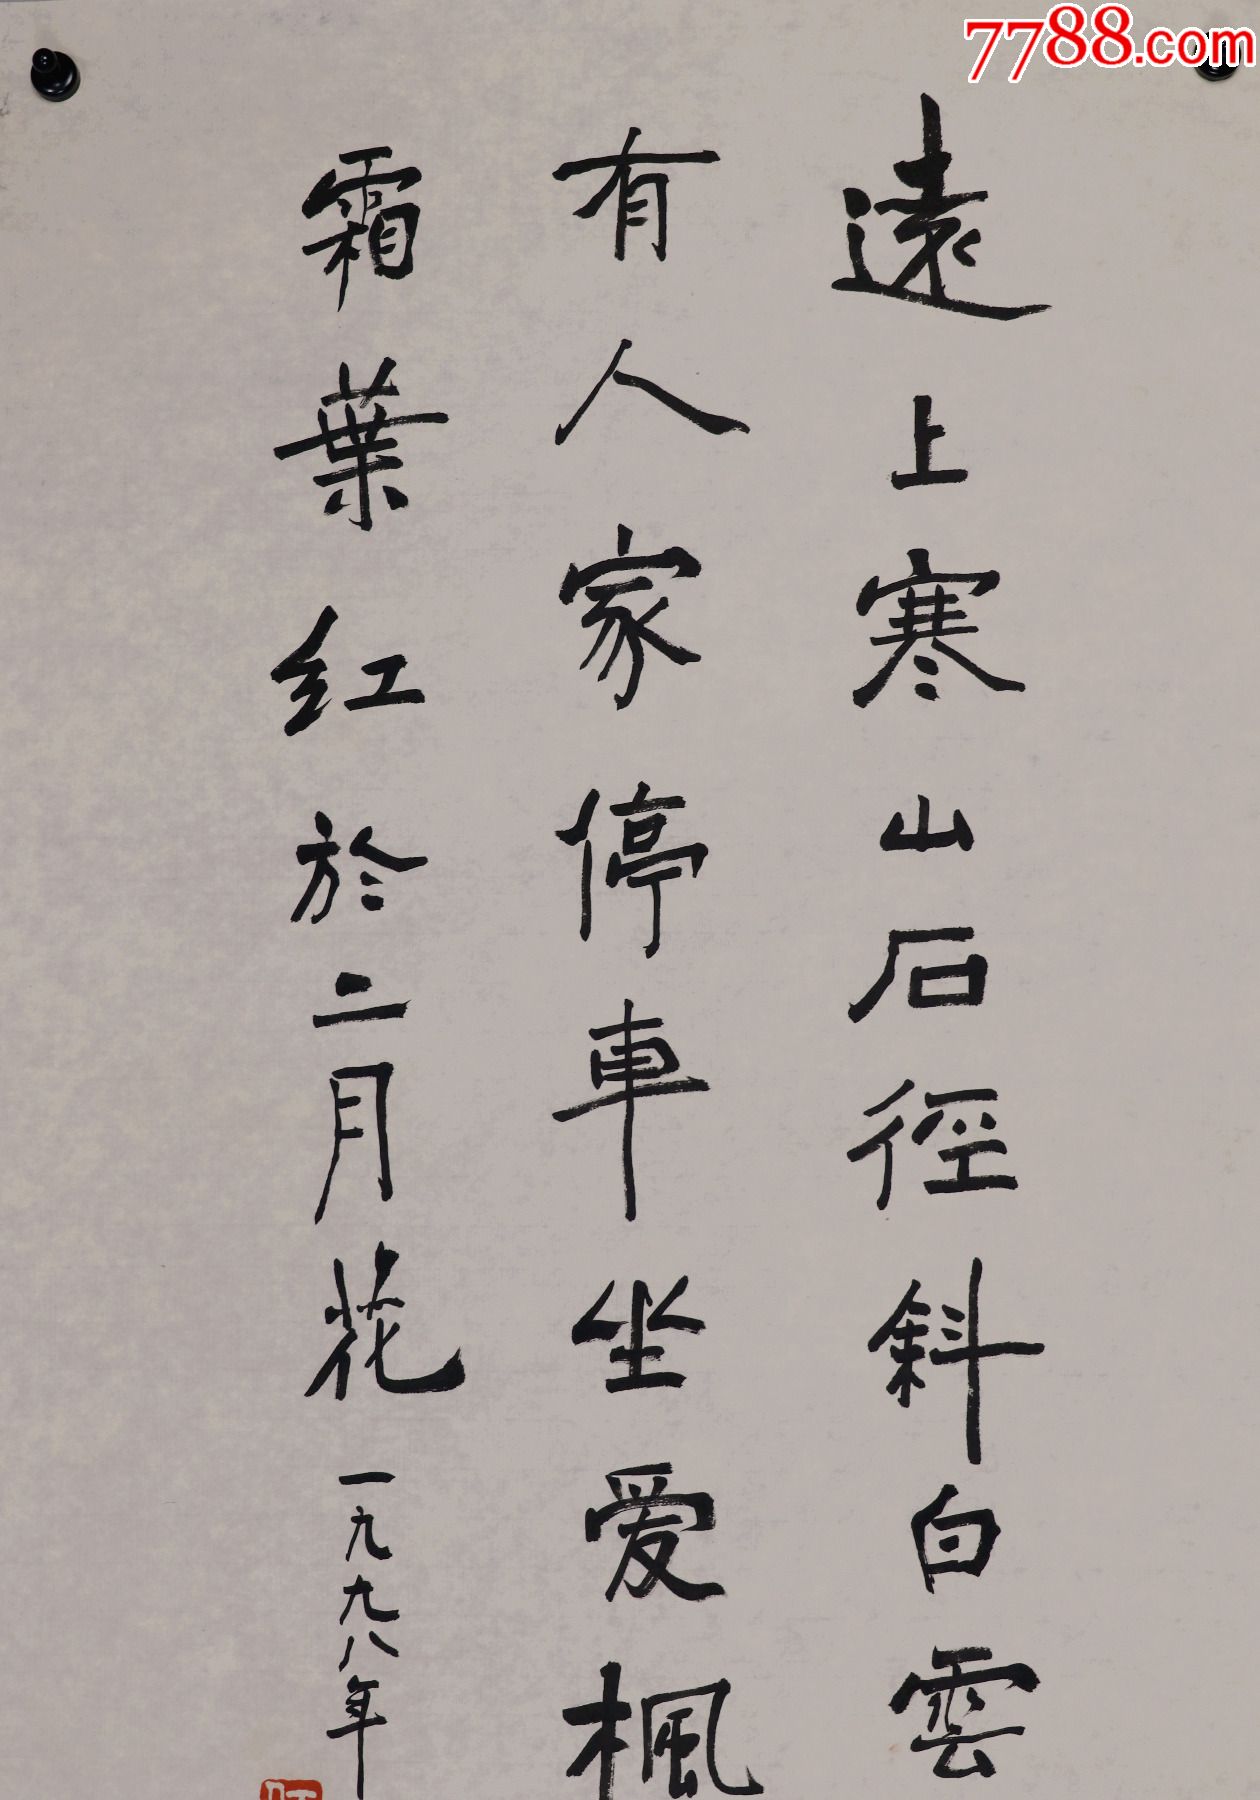 7788.com
遠上寒山石徑斜白雲
有人家停車坐爱楓
霜葉红於二月花
一九九八年